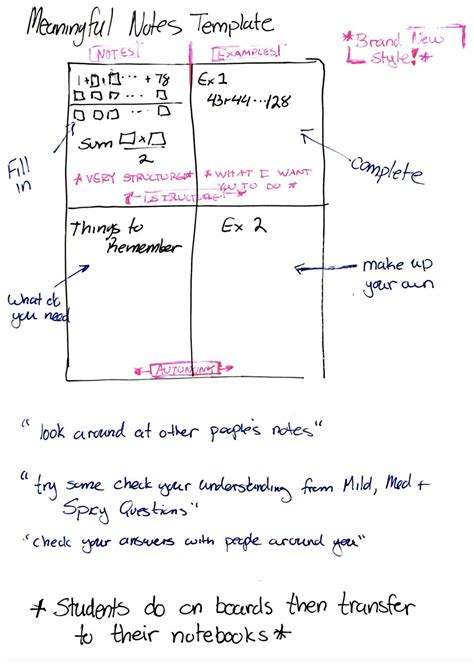 Meaningful Notes Template
NOTES
EXAMPLES
*Brand New
Style!*
1+□+□ ... + 78
□ □ □ ... □
□ □ □ ... □
Sum □x□
2
*VERY STRUCTURE*
Ex 1
43+44...128
*WHAT I WANT
YOU TO DO*
STRUCTURE
Fill
in
complete
Things to
Remember
Ex 2
What do
you need
make up
your own
AUTONOMY
"look around at other people's notes"
"try some check your understanding from Mild, Med +
Spicy Questions"
"check your answers with people around you"
* Students do on boards then transfer
to their notebooks *